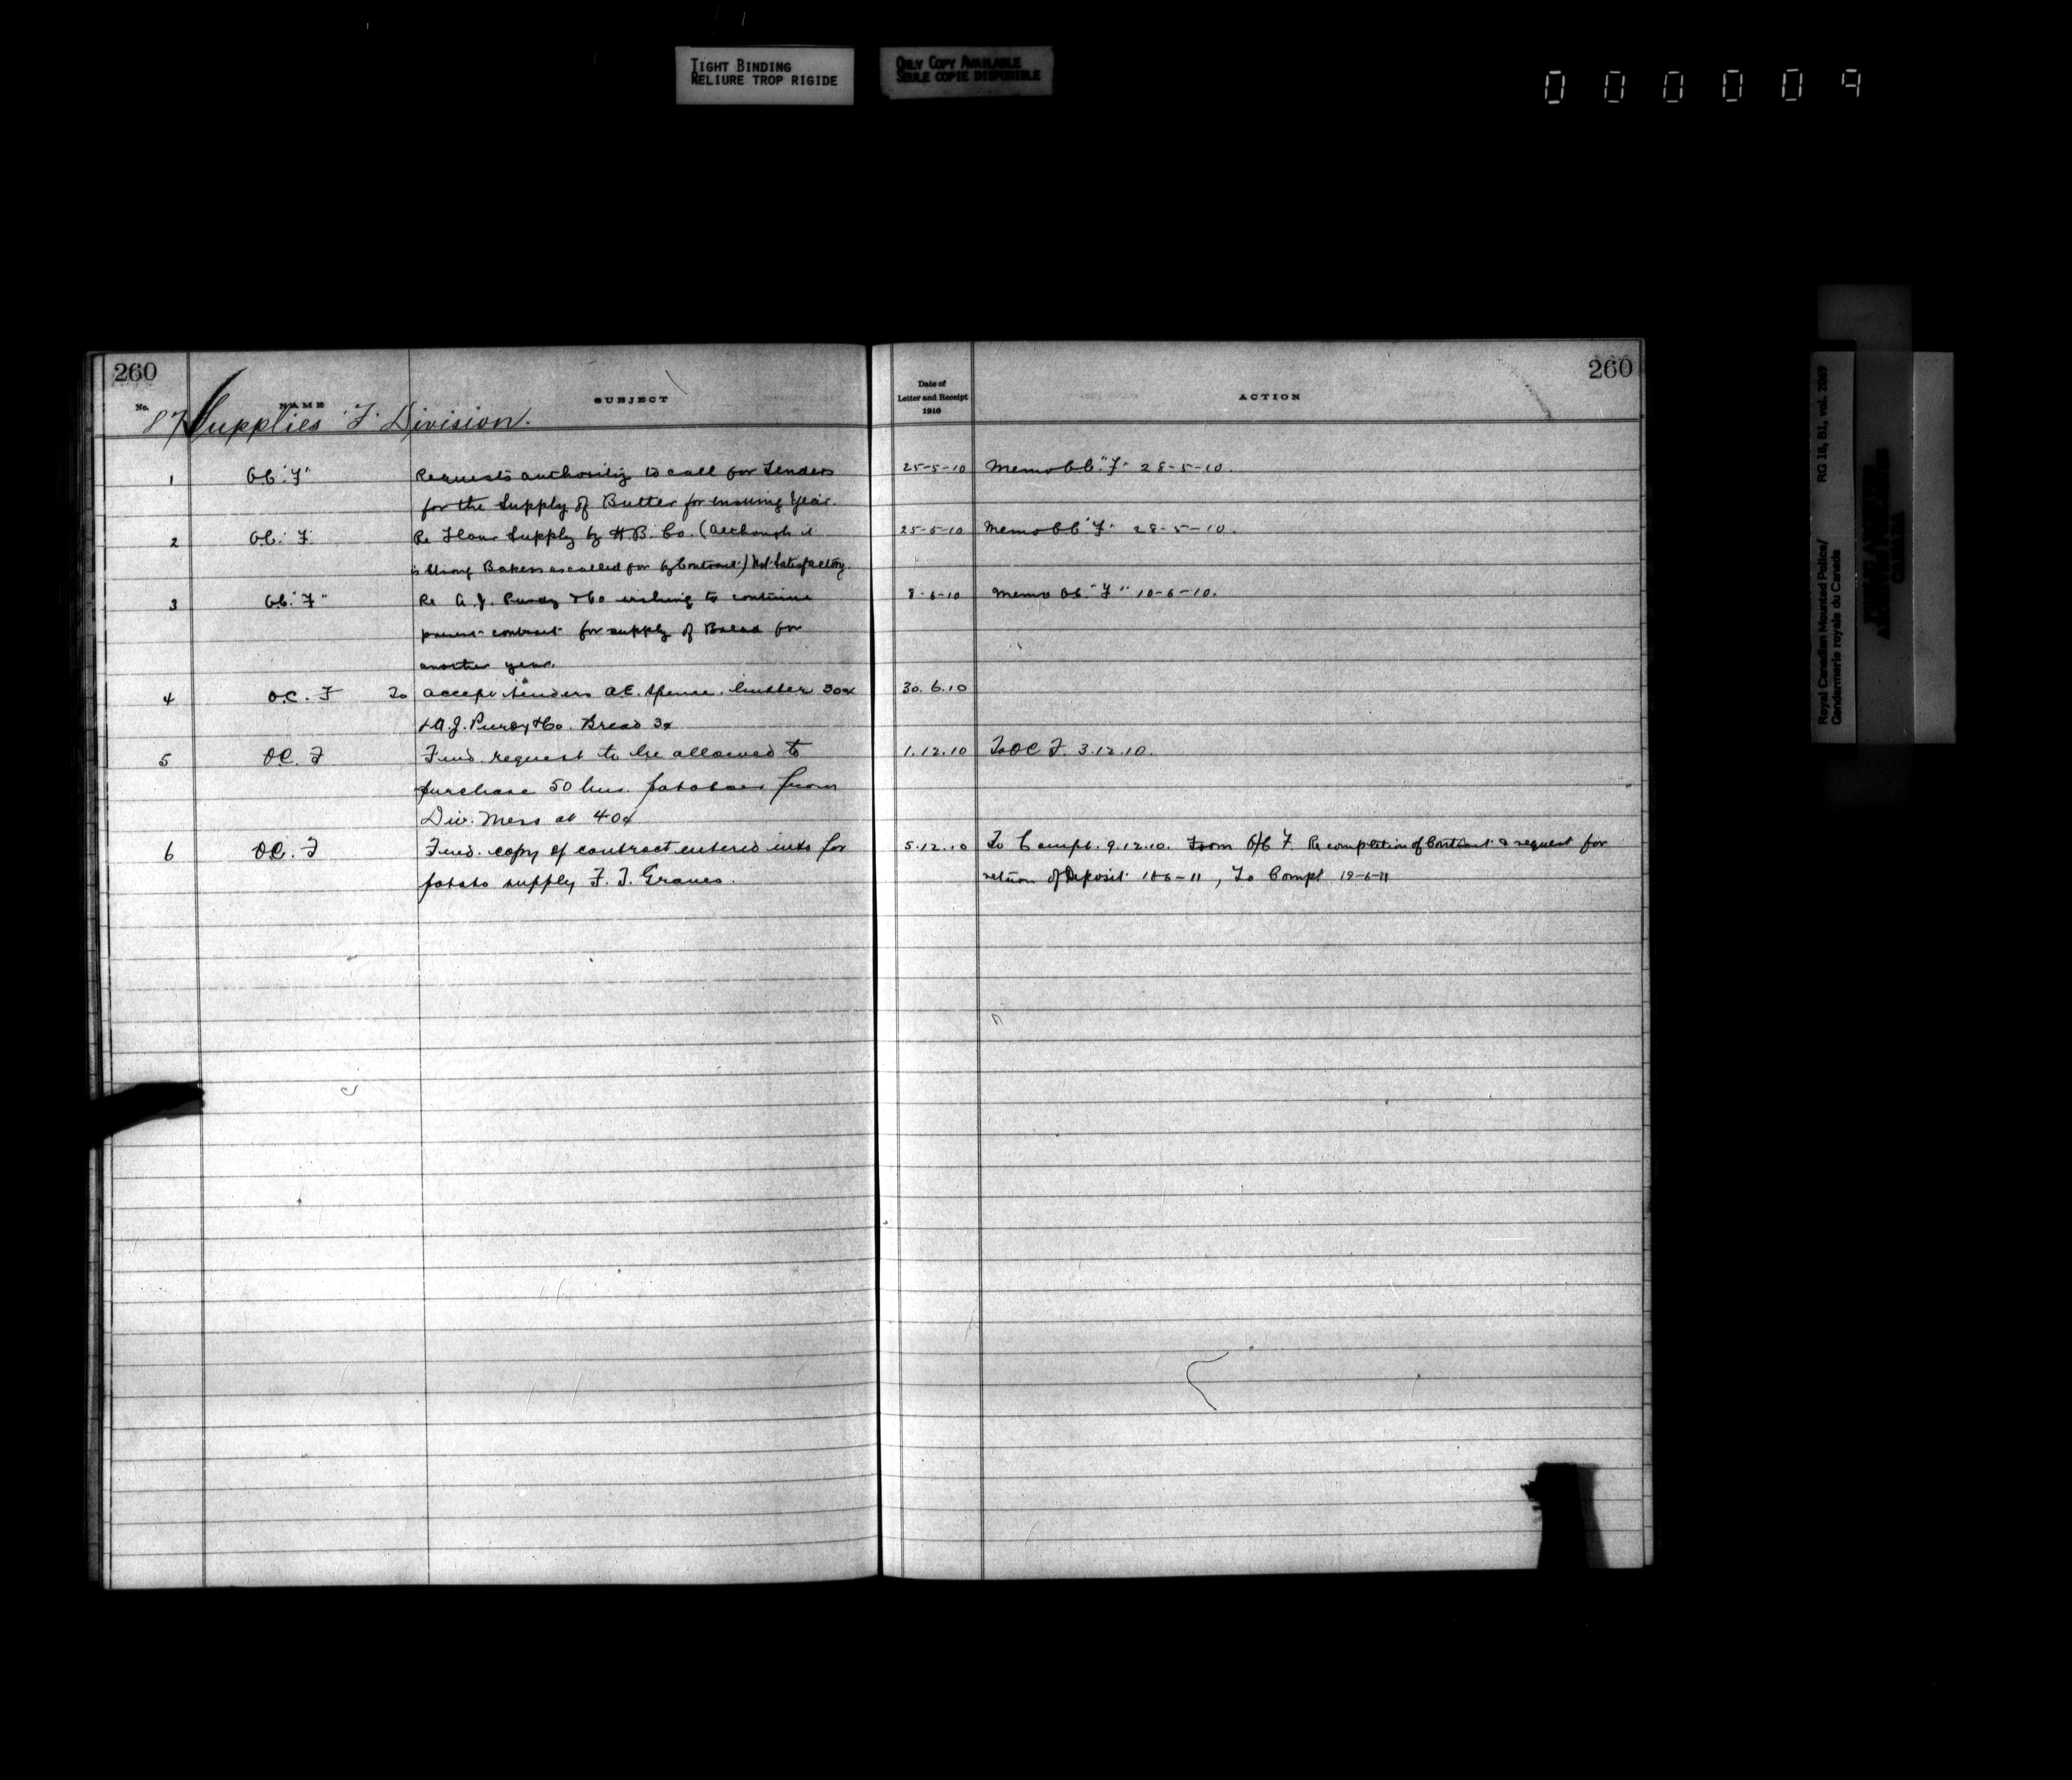 TIGHT BINDING
RELIURE TROP RIGIDE
ONLY COPY AVAILABLE
SEULE COPIE DISPONIBLE
000009
260
No. NAME SUBJECT
87 Supplies "F" Division.
1 O.C. "F" Requests authority to call for Tenders
for the Supply of Butter for ensuing Year.
2 O.C. "F" Re Flour Supply by H.B. Co. (Although it
is Strong Bakers as called for by Contract) Not Satisfactory.
3 O.C. "F" Re A.J. Purdy & Co wishing to continue
present contract for supply of Bread for
another year.
4 O.C. F To accept tenders A.E. Spence. butter 30¢
& A.J. Purdy & Co. Bread 3¢
5 O.C. F Fwd. request to be allowed to
purchase 50 bus. potatoes from
Div. Mess at 40¢
6 O.C. F Fwd. copy of contract entered into for
potato supply F. J. Graves.
260
Date of
Letter and Receipt
1910
ACTION
25-5-10 Memo O.C. "F" 28-5-10.
25-5-10 Memo O.C. "F" 28-5-10.
8-6-10 Memo O.C. "F" 10-6-10.
30.6.10
1.12.10 To O C F. 3.12.10.
5.12.10 To Compt. 9.12.10. From O/C F. Re completion of Contract & request for
return of Deposit , To Compt 19-6-11
Royal Canadian Mounted Police/
Gendarmerie royale du Canada
RG 18, B1, vol. 2069